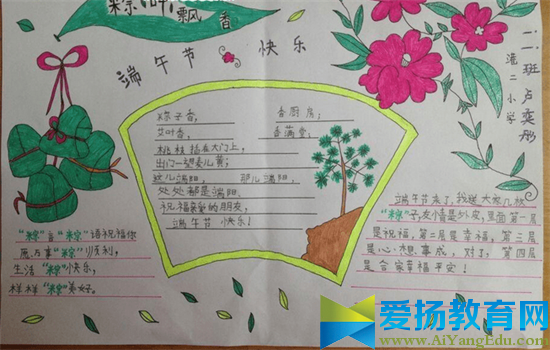 粽叶飘香
端午节 快乐
二、二班 卢奕彤
淮二小学
粽子香， 香厨房；
艾叶香， 香满堂；
桃枝插在大门上，
出门一望麦儿黄；
这儿端阳， 那儿端阳，
处处都是端阳。
祝福亲爱的朋友，
端午节快乐！
"粽"言"粽"语祝福你
愿万事"粽"顺利，
生活"粽"快乐，
样样"粽"美好。
端午节来了，我送大家几枚
"粽"子，友情是外皮，里面第一层
是祝福，第二层是幸福，第三层
是心想事成，对了，第四层
是合家幸福平安！
爱扬教育网
www.AiYangEdu.com